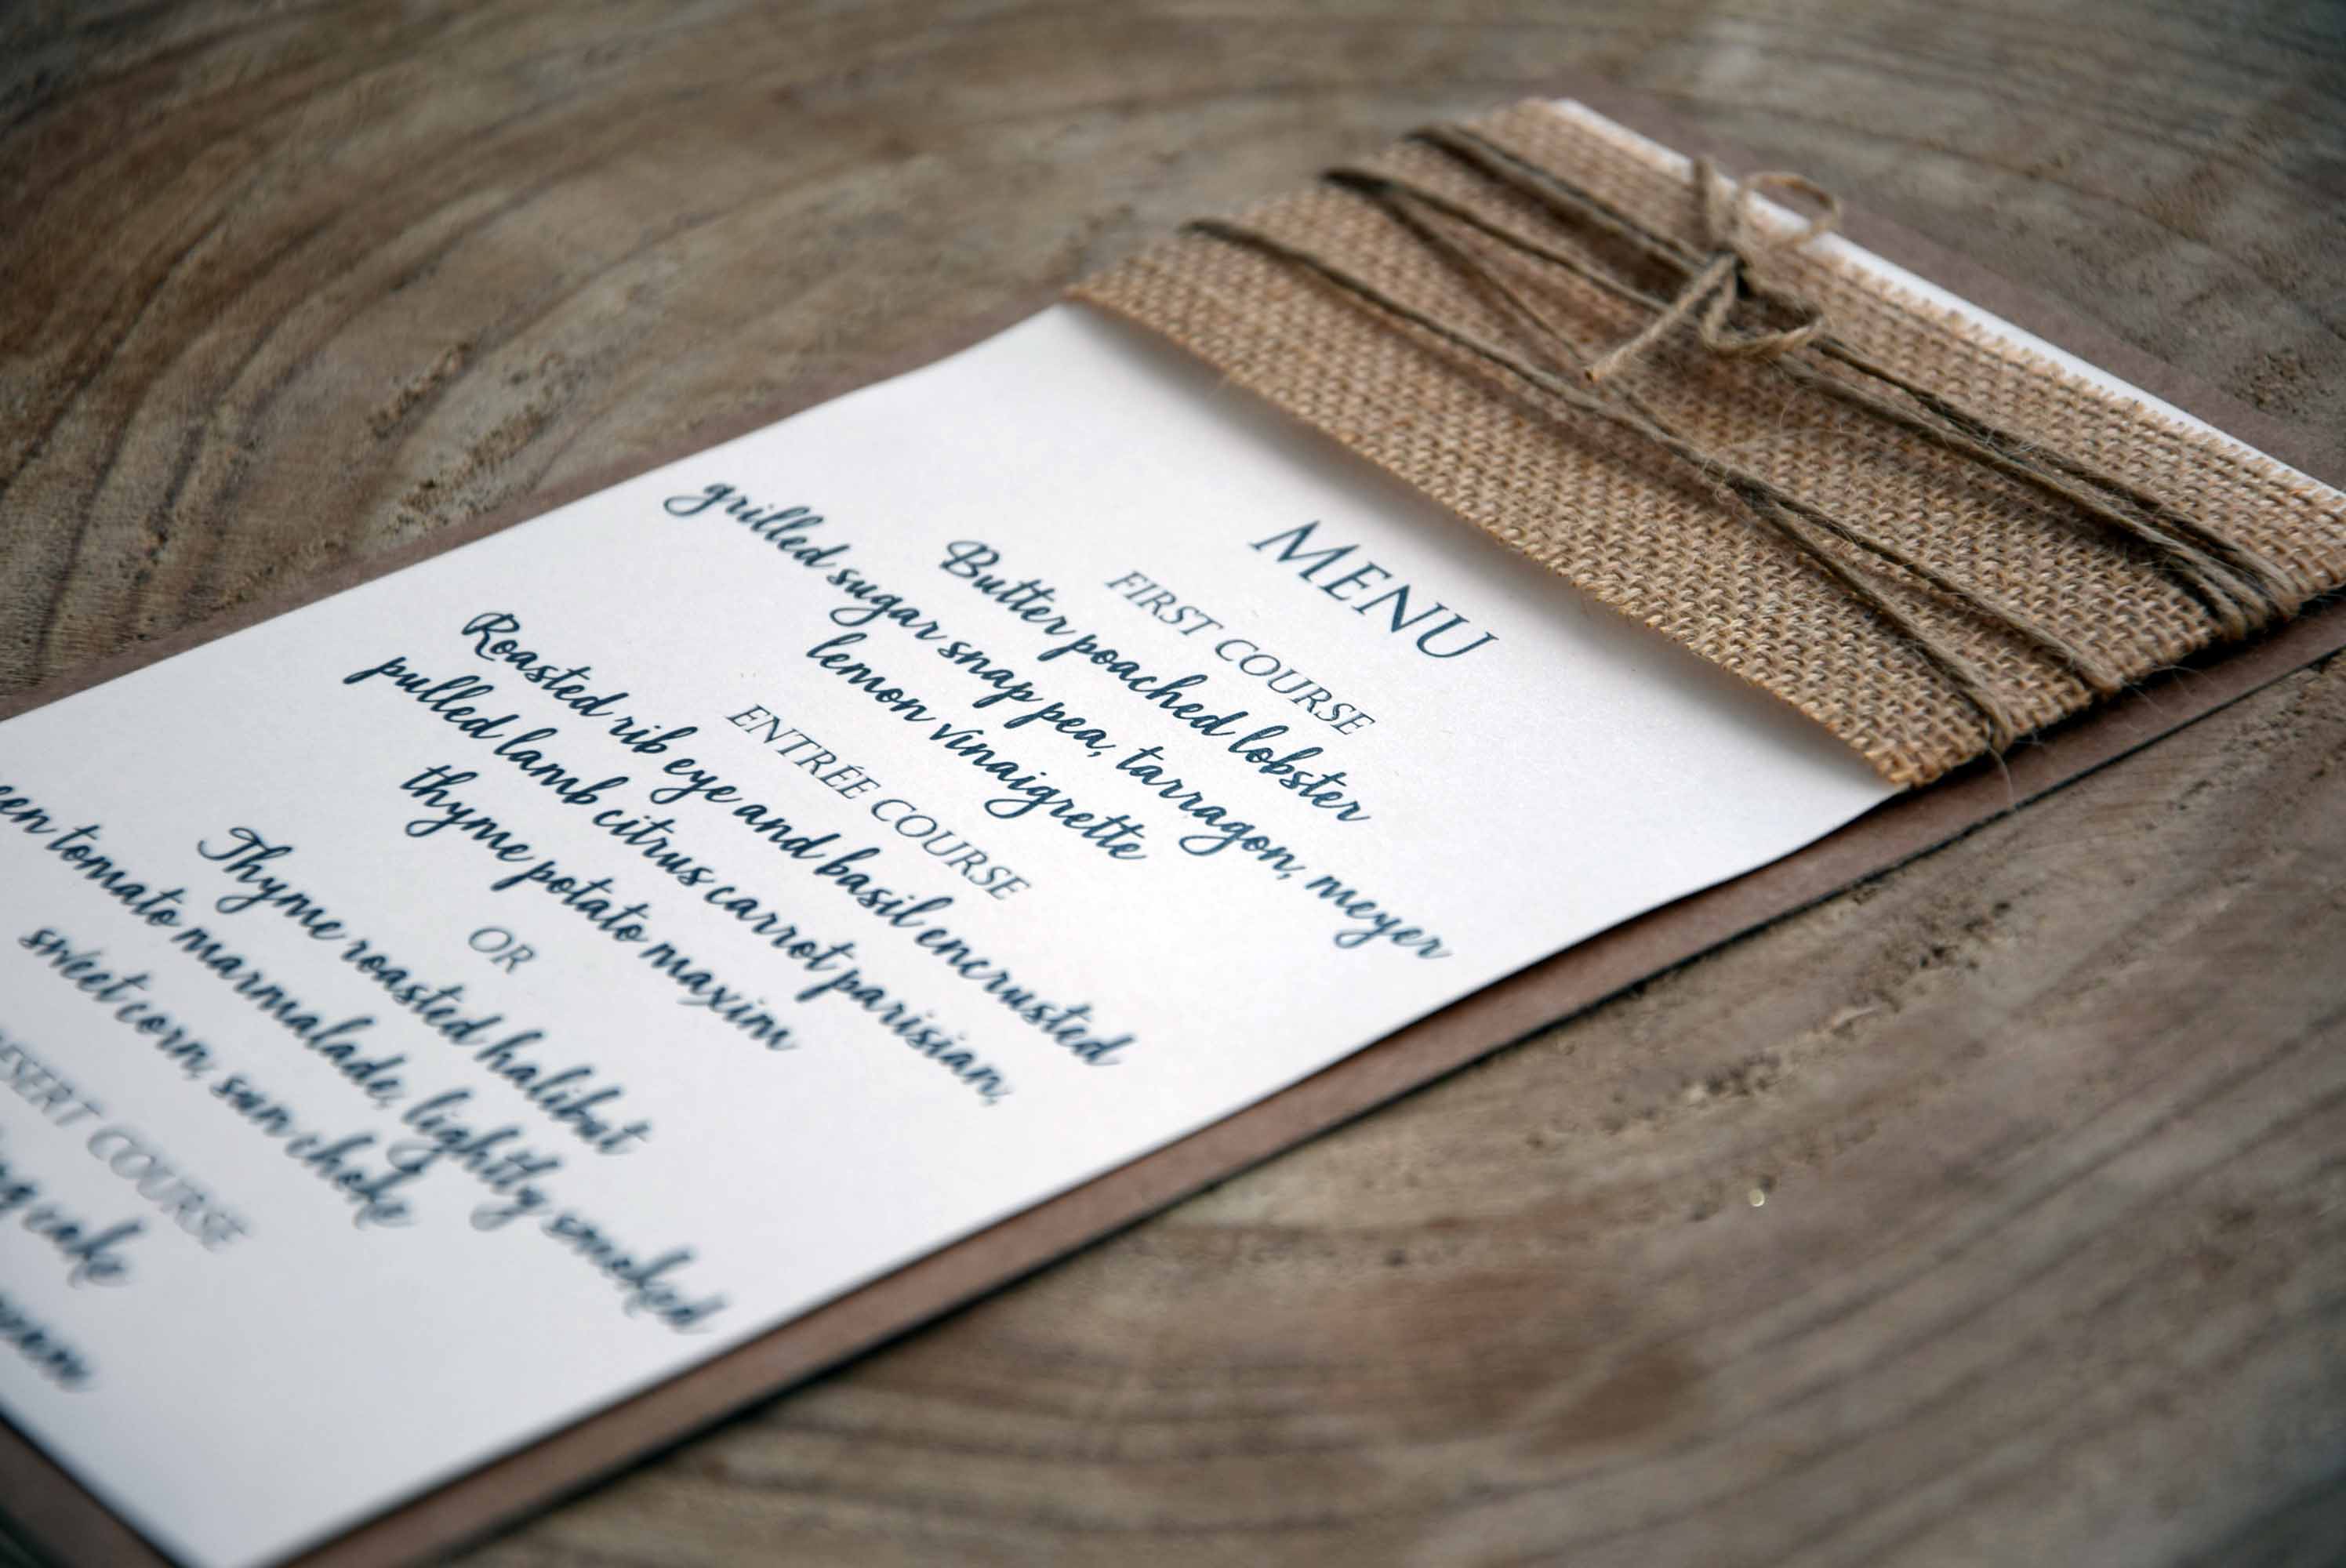 MENU
FIRST COURSE
Butter poached lobster
grilled sugar snap pea, tarragon, meyer
lemon vinaigrette
ENTRÉE COURSE
Roasted rib eye and basil encrusted
pulled lamb citrus carrot parisian,
thyme potato maxim
OR
Thyme roasted halibut
tomato marmalade, lightly smoked
sweet corn, sun choke
COURSE
cake